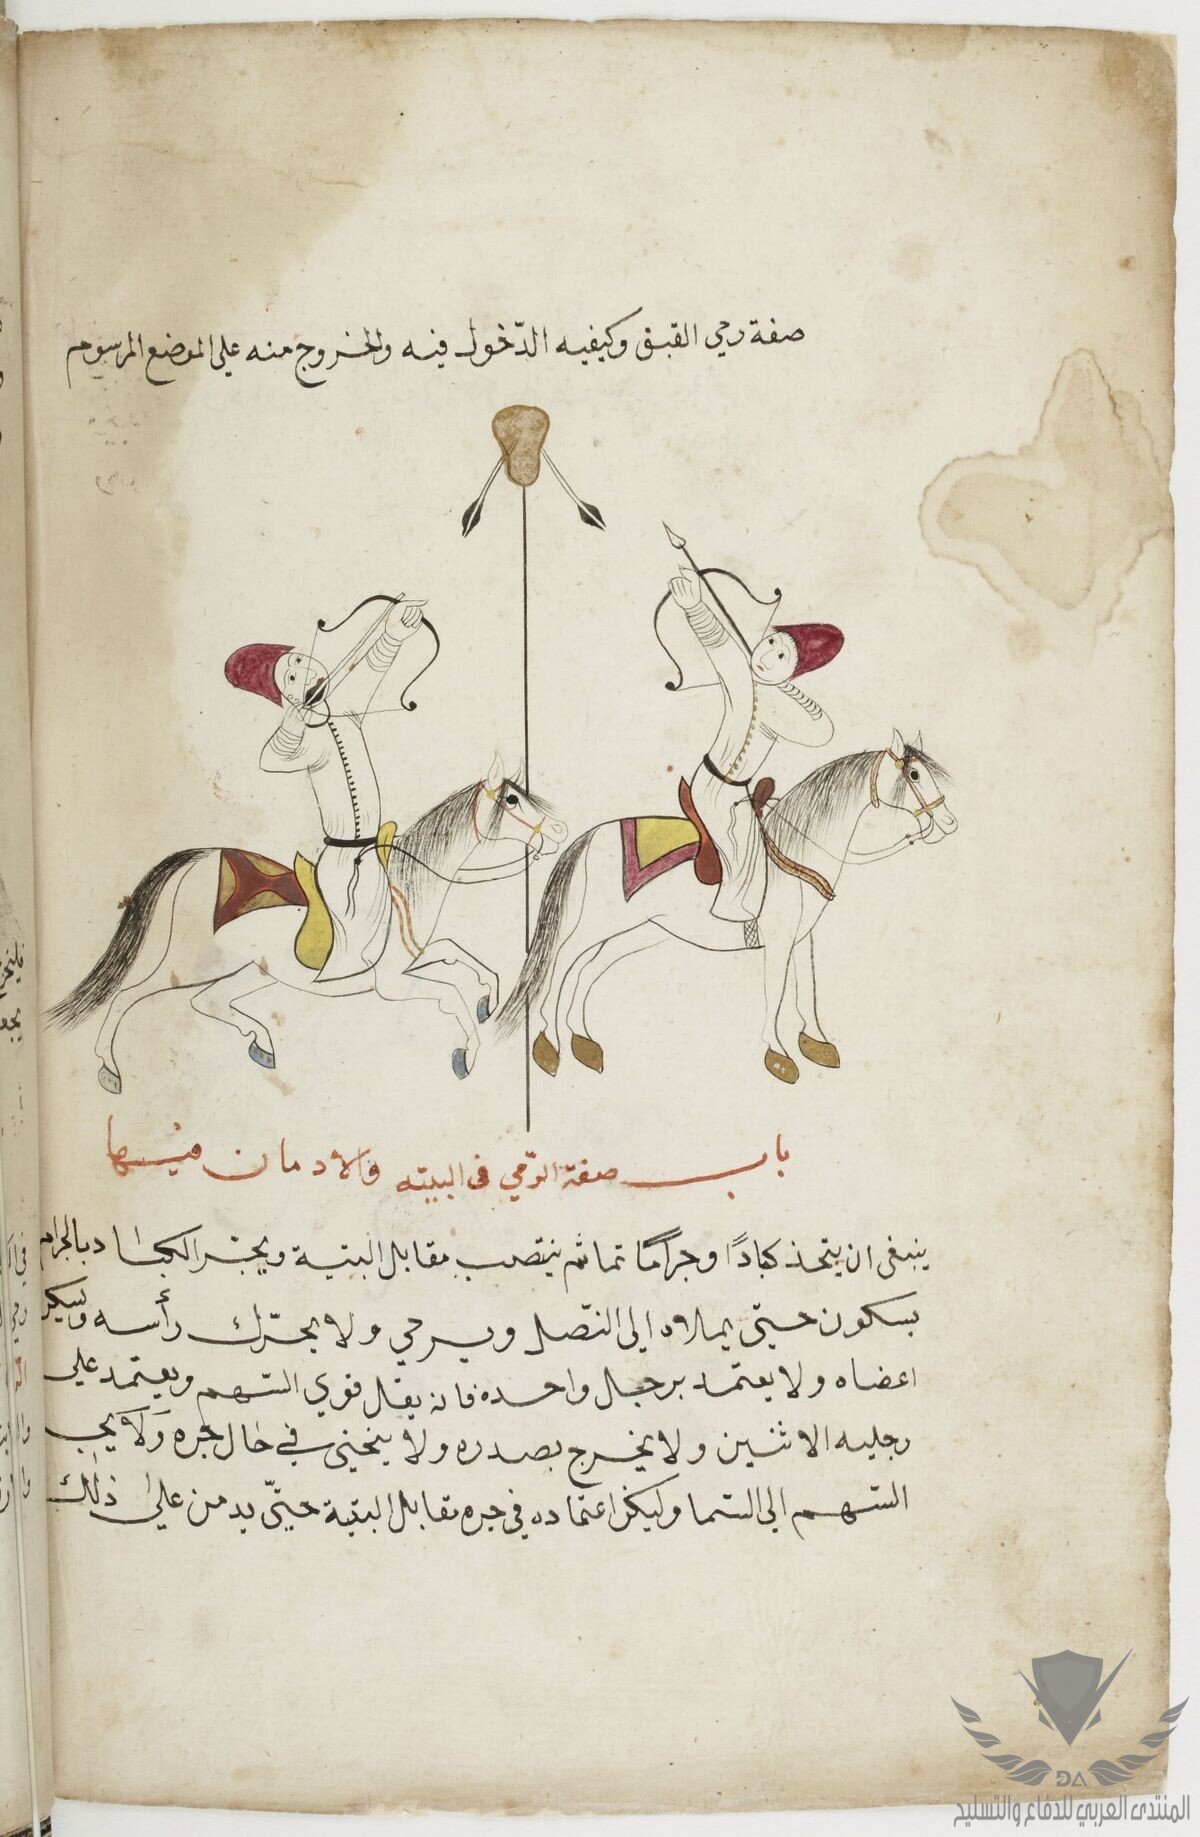 صفة رمي القبق وكيفيه الدّخول فيه والخروج منه علي الموضع المرسوم
باب صفة الرّمي في البيته والادمان فيها
ينبغي ان يتخذ كبادًا وجرامًا تماثم ينتصب مقابل البتية ويجتر الكباد بالجرام
بسكون حتى يملاه الي النّصل ويرمي ولا يحرّك رأسه وبسكن
اعضاه ولا يعتمد برجل واحده فانه يقل قوي السّهم ويعتمد علي
رجليه الاثنين ولا يخرج بصدره ولا ينحني في حال جره ولا
السّهم الي السّما وليكن اعتماده في جره مقابل البتية حتّي يدمن علي ذلك
DA
المنتدى العربي للدفاع والتسليح